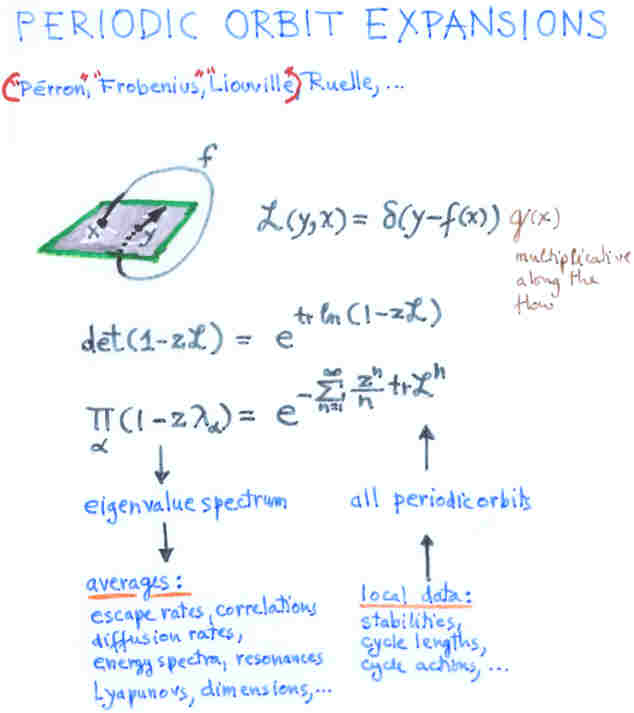 PERIODIC ORBIT EXPANSIONS
("Perron", "Frobenius", "Liouville") Ruelle, ...
f
x
y
ℒ(y,x) = δ(y-f(x)) g(x)
multiplicative
along the
flow
det(1-zℒ) = e^{tr ln(1-zℒ)}
∏_α(1-zλ_α) = e^{-∑_{n=1}^{∞} \frac{z^n}{n} trℒ^n}
eigenvalue spectrum
all periodic orbits
averages:
escape rates, correlations
diffusion rates,
energy spectra, resonances
Lyapunovs, dimensions,...
local data:
stabilities,
cycle lengths,
cycle actions, ...